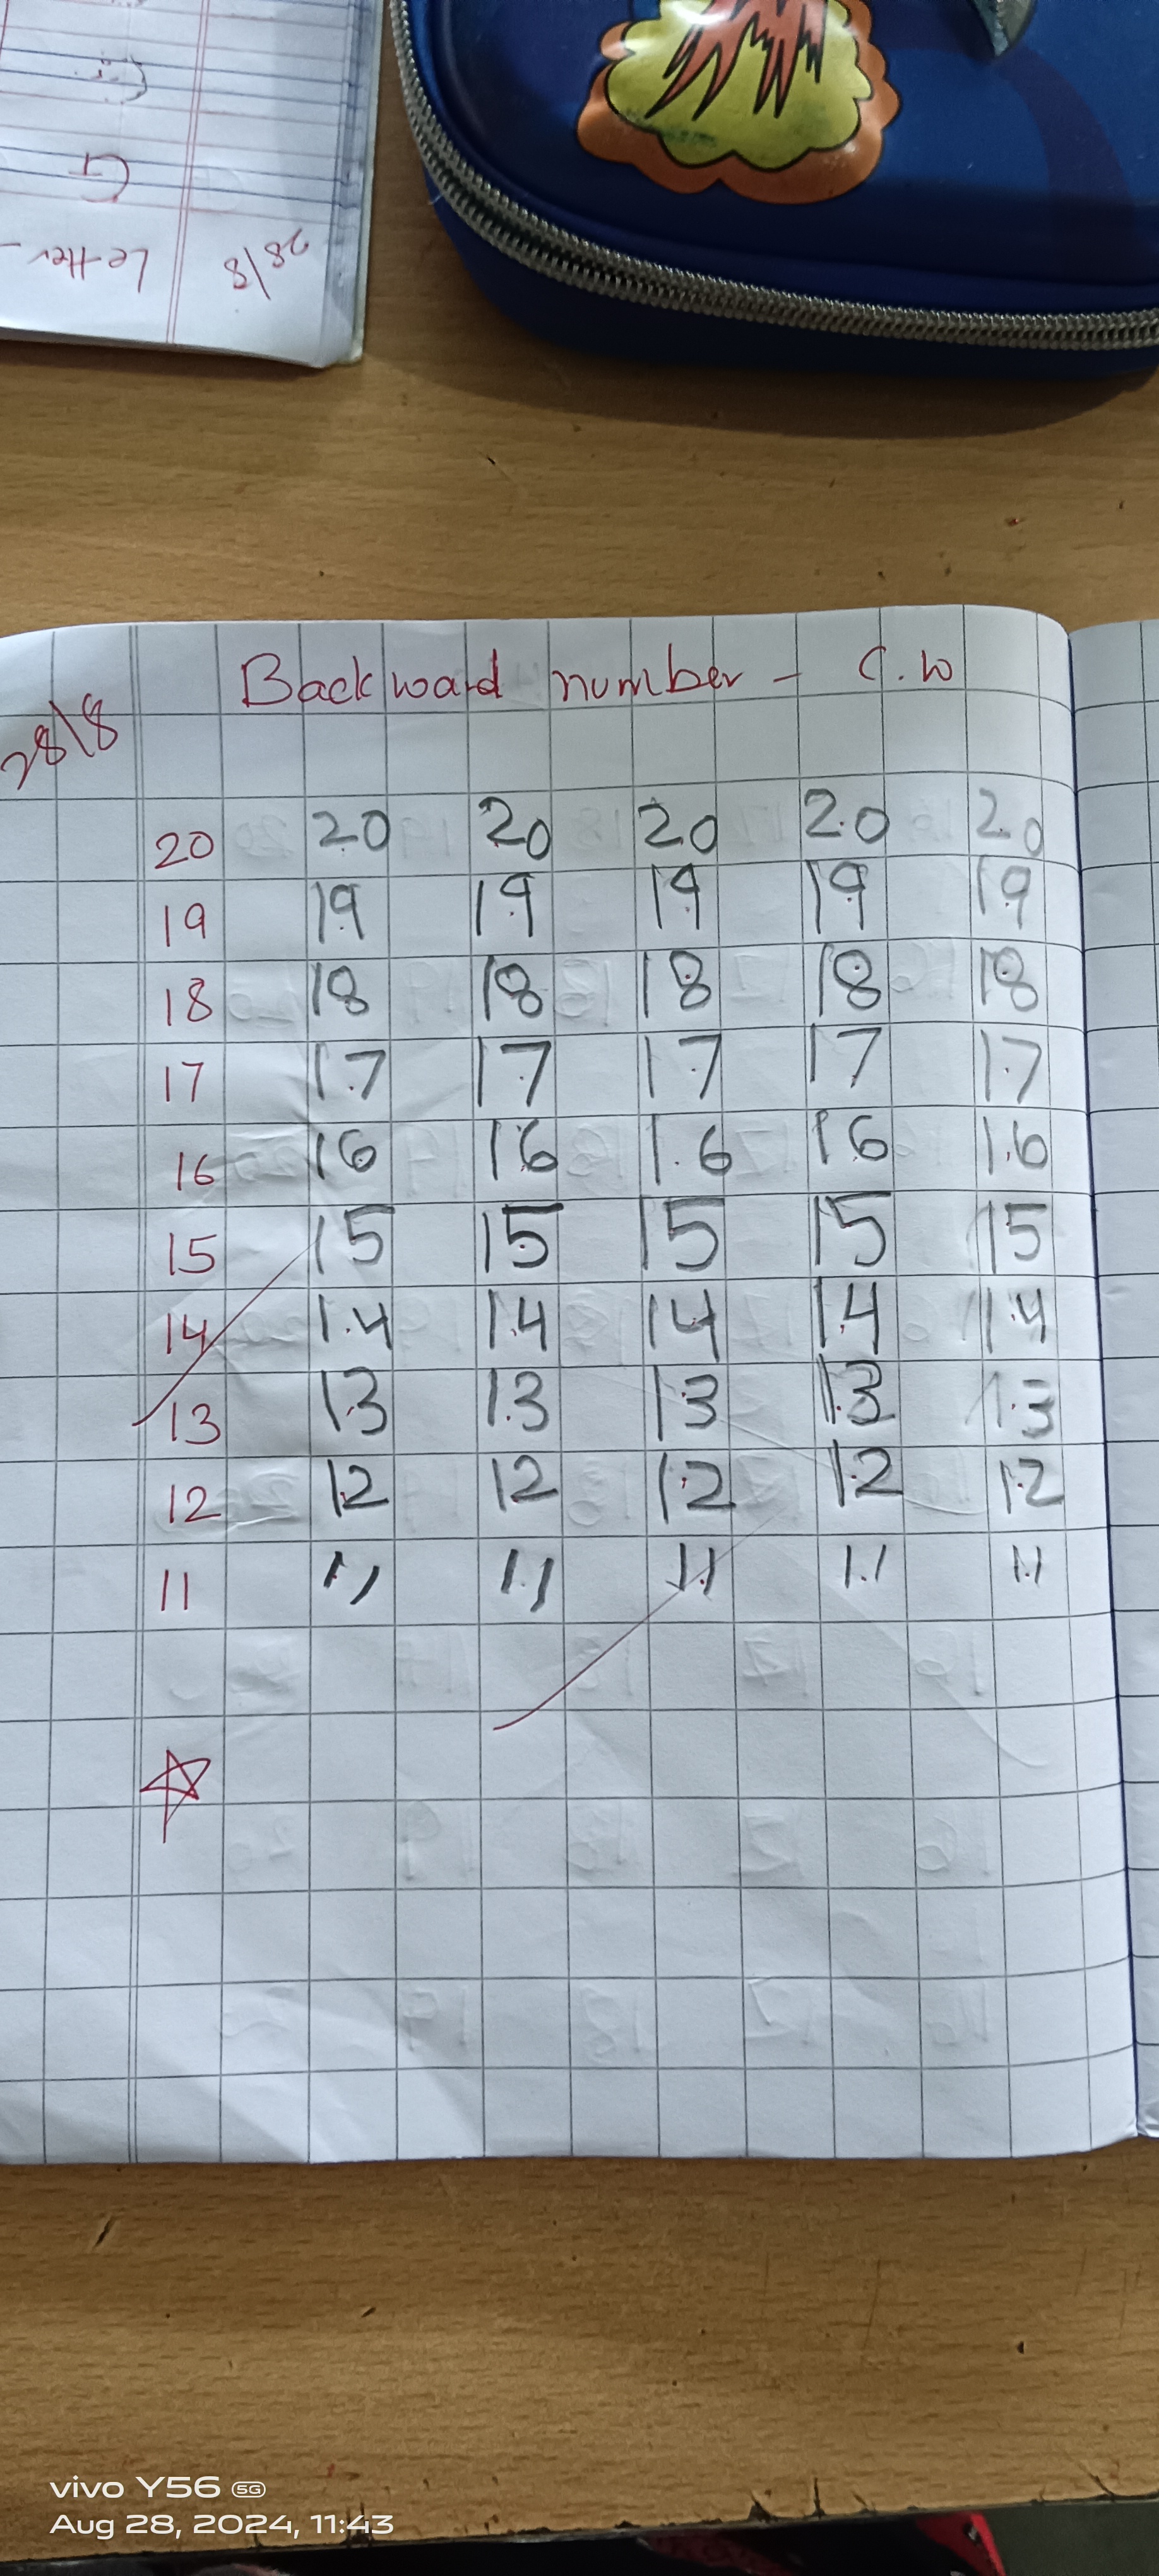 Letter -
28/8
G
Backward number - C.W
28/8
20 20 20 20 20 20
19 19 19 19 19 19
18 18 18 18 18 18
17 17 17 17 17 17
16 16 16 16 16 16
15 15 15 15 15 15
14 14 14 14 14 14
13 13 13 13 13 13
12 12 12 12 12 12
11 11 11 11 11 11
vivo Y56 5G
Aug 28, 2024, 11:43